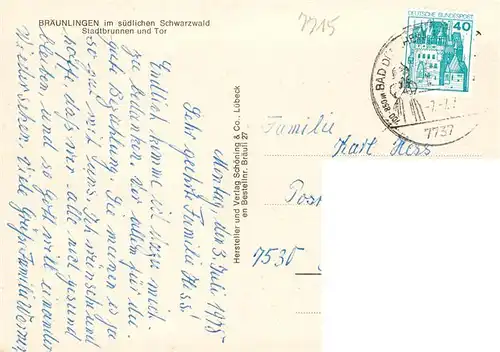 BRÄUNLINGEN im südlichen Schwarzwald
Stadtbrunnen und Tor
7715
DEUTSCHE BUNDESPOST
40
BAD
700-850 m
7737
Hersteller und Verlag Schöning & Co., Lübeck
en Bestellnr. Bräuli 27
Montag, den 3. Juli 1978
Sehr geehrte Familie Hess!
Endlich komme ich dazu mich
zu bedanken, vor allem für die
gute Bezahlung. Sie meinen es ja
so gut mit uns. Ich wünsche und
hoffe, dass wir alle noch gesund
bleiben, und so Gott will einander
wiedersehen. Viele Grüße Familie
Familie
Karl Hess
Pos
7530